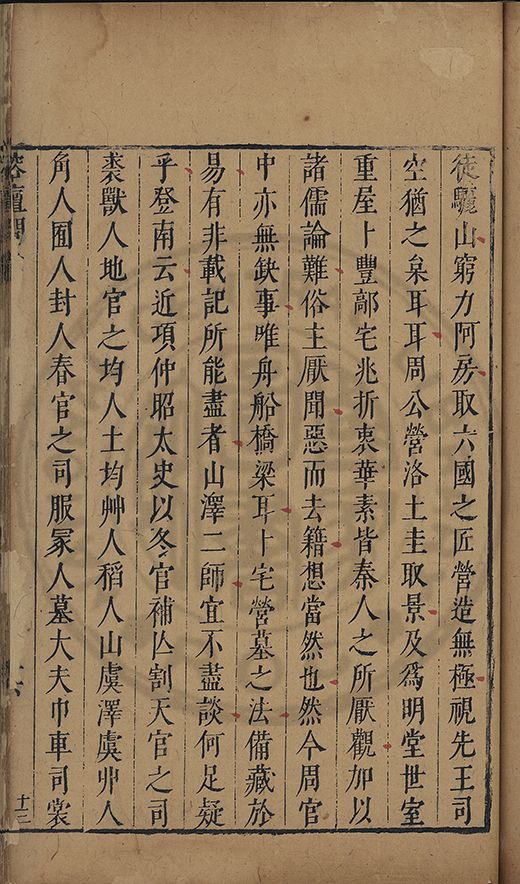 徒驪山窮力阿房取六國之匠營造無極視先王司
空猶之臬耳耳周公營洛土圭取景及爲明堂世室
重屋卜豐鄗宅兆折衷華素皆秦人之所厭觀加以
諸儒論難俗主厭聞惡而去籍想當然也然今周官
中亦無缺事唯舟船橋梁耳卜宅營墓之法備藏於
易有非載記所能盡者山澤二師宜不盡談何足疑
乎登南云近項仲昭太史以冬官補亾割天官之司
裘獸人地官之均人土均艸人稻人山虞澤虞丱人
角人囿人封人春官之司服冢人墓大夫巾車司裳
容壇問
十三